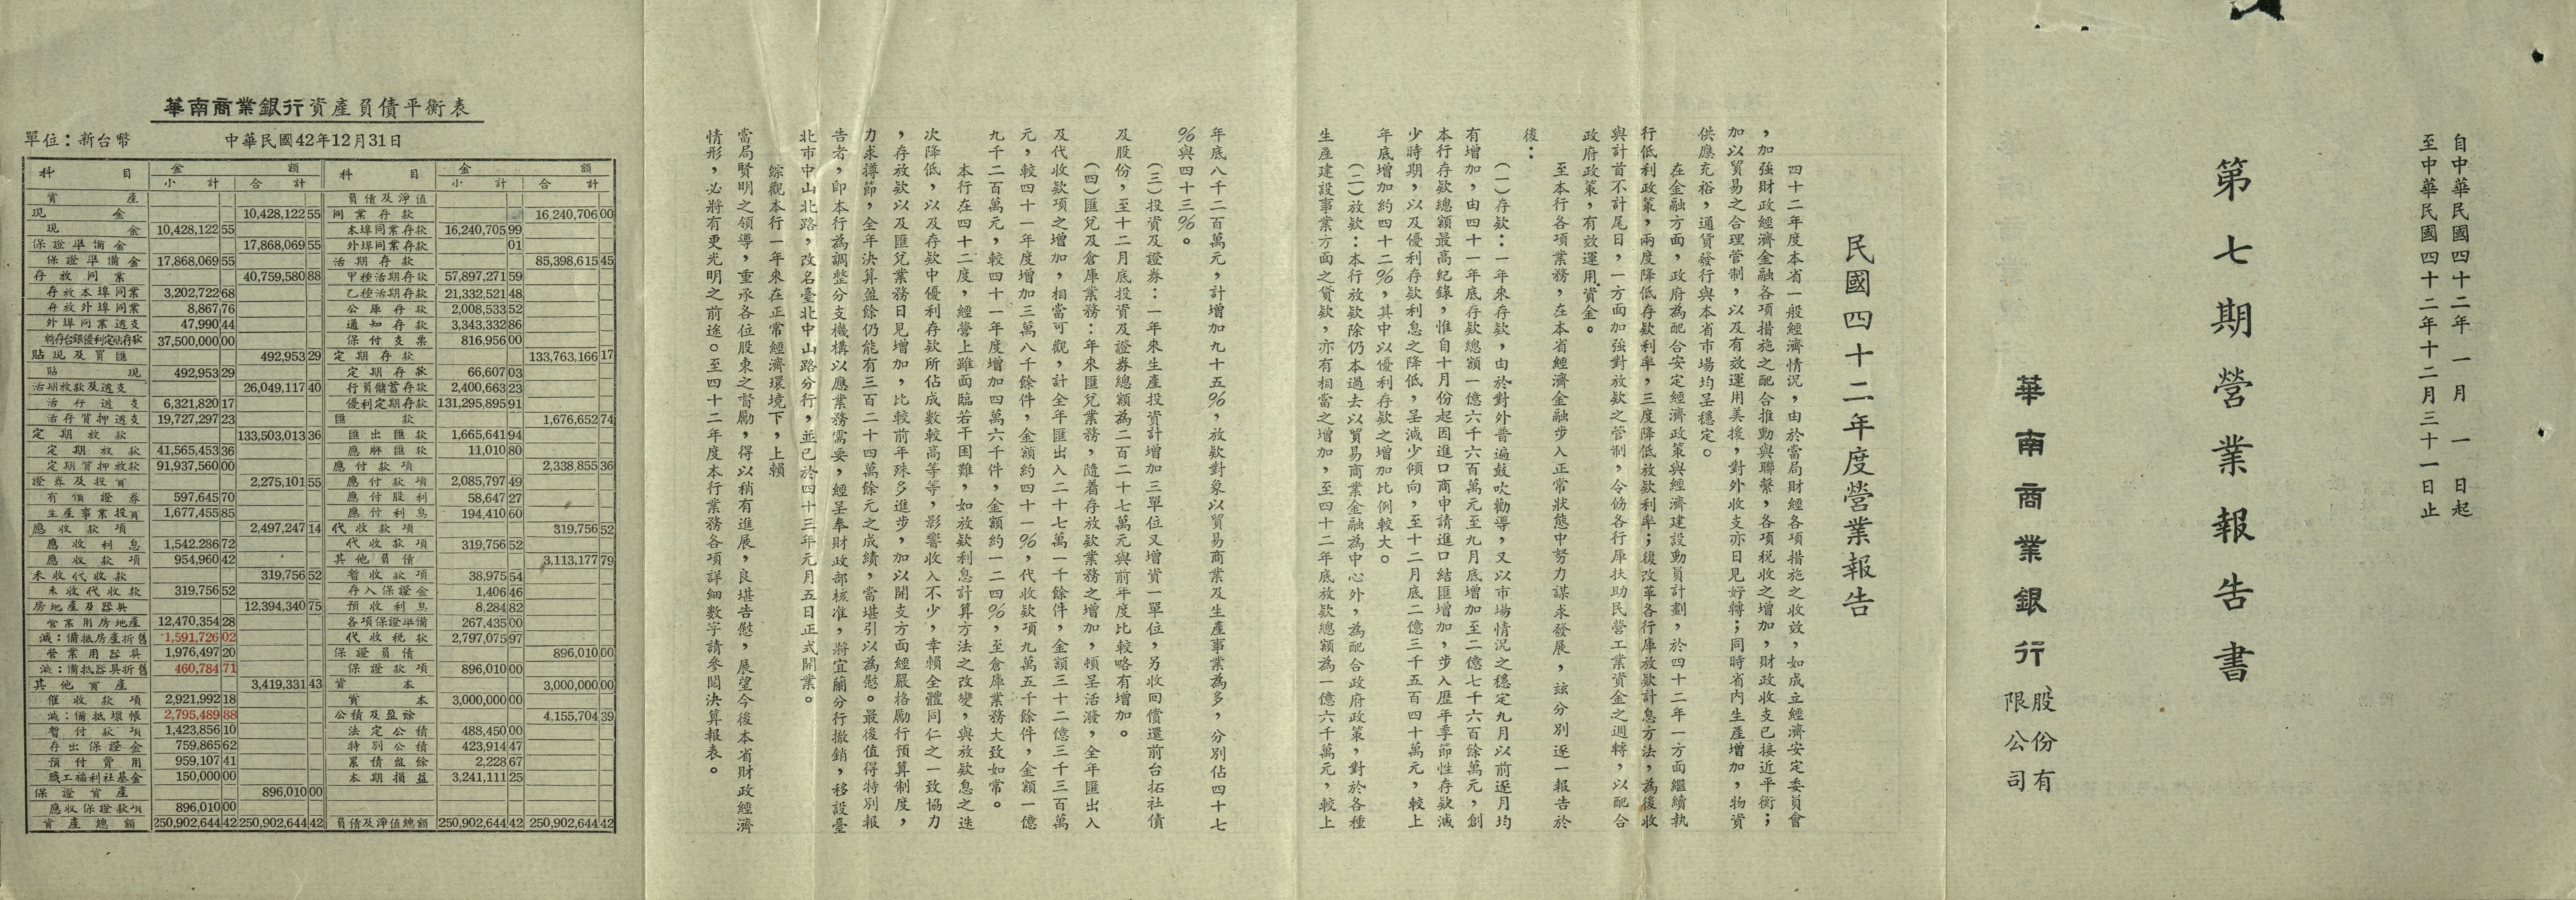 自中華民國四十二年一月一日起
至中華民國四十二年十二月三十一日止
第七期營業報告書
華南商業銀行股份有限公司
民國四十二年度營業報告
四十二年度本省一般經濟情況，由於當局財經各項措施之收效，如成立經濟安定委員會
，加強財政經濟金融各項措施之配合推動與聯繫，各項稅收之增加，財政收支已接近平衡；
加以貿易之合理管制，以及有效運用美援，對外收支亦日見好轉；同時省內生產增加，物資
供應充裕，通貨發行與本省市場均呈穩定。
在金融方面，政府為配合安定經濟政策與經濟建設動員計劃，於四十二年一方面繼續執
行低利政策，兩度降低存款利率，三度降低放款利率；後改革各行庫放款計息方法，為後收
與計首不計尾日，一方面加強對放款之管制，令飭各行庫扶助民營工業資金之週轉，以配合
政府政策，有效運用資金。
至本行各項業務，在本省經濟金融步入正常狀態中努力謀求發展，茲分別逐一報告於
後：
（一）存款：一年來存款，由於對外普遍鼓吹勸導，又以市場情況之穩定九月以前逐月均
有增加，由四十一年底存款總額一億六千六百萬元至九月底增加至二億七千六百餘萬元，創
本行存款總額最高紀錄，惟自十月份起因進口商申請進口結匯增加，步入歷年季節性存款減
少時期，以及優利存款利息之降低，呈減少傾向，至十二月底二億三千五百四十萬元，較上
年底增加約四十二％，其中以優利存款之增加比例較大。
（二）放款：本行放款除仍本過去以貿易商業金融為中心外，為配合政府政策，對於各種
生產建設事業方面之貸款，亦有相當之增加，至四十二年底放款總額為一億六千萬元，較上
年底八千二百萬元，計增加九十五％，放款對象以貿易商業及生產事業為多，分別佔四十七
％與四十三％。
（三）投資及證券：一年來生產投資計增加三單位又增資一單位，另收回償還前台拓社債
及股份，至十二月底投資及證券總額為二百二十七萬元與前年度比較略有增加。
（四）匯兌及倉庫業務：年來匯兌業務，隨着存放款業務之增加，頓呈活潑，全年匯出入
及代收款項之增加，相當可觀，計全年匯出入二十七萬一千餘件，金額三十二億三千三百萬
元，較四十一年度增加三萬八千餘件，金額約四十一％，代收款項九萬五千餘件，金額一億
九千二百萬元，較四十一年度增加四萬六千件，金額約一二四％，至倉庫業務大致如常。
本行在四十二度，經營上雖面臨若干困難，如放款利息計算方法之改變，與放款息之迭
次降低，以及存款中優利存款所佔成數較高等等，影響收入不少，幸賴全體同仁之一致協力
，存放款以及匯兌業務日見增加，比較前年殊多進步，加以開支方面經嚴格勵行預算制度，
力求撙節，全年決算盈餘仍能有三百二十四萬餘元之成績，當堪引以為慰。最後值得特別報
告者，卽本行為調整分支機構以應業務需要，經呈奉財政部核准，將宜蘭分行撤銷，移設臺
北市中山北路，改名臺北中山路分行，並已於四十三年元月五日正式開業。
綜觀本行一年來在正常經濟環境下，上賴
當局賢明之領導，重承各位股東之督勵，得以稍有進展，良堪告慰，展望今後本省財政經濟
情形，必將有更光明之前途。至四十二年度本行業務各項詳細數字請參閱決算報表。
華南商業銀行資產負債平衡表
單位：新台幣　中華民國42年12月31日
科目　金額　科目　金額
小計　合計　小計　合計
資產　負債及淨值
現金　10,428,122 55　同業存款　16,240,706 00
現金　10,428,122 55　本埠同業存款　16,240,705 99
保證準備金　17,868,069 55　外埠同業存款　01
保證準備金　17,868,069 55　活期存款　85,398,615 45
存放同業　40,759,580 88　甲種活期存款　57,897,271 59
存放本埠同業　3,202,722 68　乙種活期存款　21,332,521 48
存放外埠同業　8,867 76　公庫存款　2,008,533 52
外埠同業透支　47,990 44　通知存款　3,343,332 86
轉存台銀優利定期存款　37,500,000 00　保付支票　816,956 00
貼現及買匯　492,953 29　定期存款　133,763,166 17
貼現　492,953 29　定期存款　66,607 03
活期放款及透支　26,049,117 40　行員儲蓄存款　2,400,663 23
活存透支　6,321,820 17　優利定期存款　131,295,895 91
活存質押透支　19,727,297 23　匯款　1,676,652 74
定期放款　133,503,013 36　匯出匯款　1,665,641 94
定期放款　41,565,453 36　應解匯款　11,010 80
定期質押放款　91,937,560 00　應付款項　2,338,855 36
證券及投資　2,275,101 55　應付款項　2,085,797 49
有價證券　597,645 70　應付股利　58,647 27
生產事業投資　1,677,455 85　應付利息　194,410 60
應收款項　2,497,247 14　代收款項　319,756 52
應收利息　1,542,286 72　代收款項　319,756 52
應收款項　954,960 42　其他負債　3,113,177 79
未收代收款　319,756 52　暫收款項　38,975 54
未收代收款　319,756 52　存入保證金　1,406 46
房地產及器具　12,394,340 75　預收利息　8,284 82
營業用房地產　12,470,354 28　各項保證準備　267,435 00
減：備抵房產折舊　1,591,726 02　代收稅款　2,797,075 97
營業用器具　1,976,497 20　保證負債　896,010 00
減：備抵器具折舊　460,784 71　保證款項　896,010 00
其他資產　3,419,331 43　資本　3,000,000 00
催收款項　2,921,992 18　資本　3,000,000 00
減：備抵壞帳　2,795,489 88　公積及盈餘　4,155,704 39
暫付款項　1,423,856 10　法定公積　488,450 00
存出保證金　759,865 62　特別公積　423,914 47
預付費用　959,107 41　累積盈餘　2,228 67
職工福利社基金　150,000 00　本期損益　3,241,111 25
保證資產　896,010 00
應收保證款項　896,010 00
資產總額　250,902,644 42　250,902,644 42　負債及淨值總額　250,902,644 42　250,902,644 42